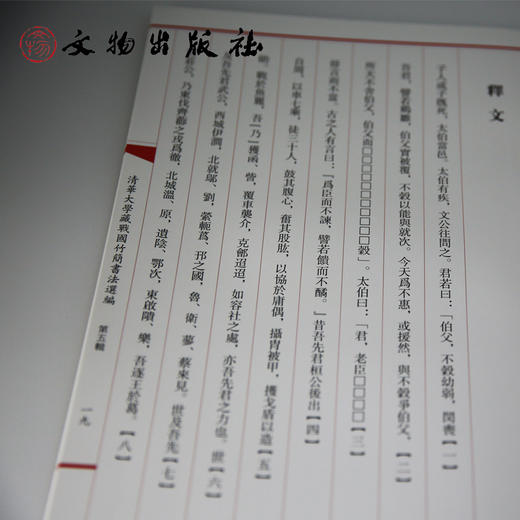 文物出版社
釋文
子人成子既死，太伯當邑。太伯有疾，文公往問之。君若曰：「伯父，不穀幼弱，閔喪【一】
吾君，譬若雞雛，伯父實被覆，不穀以能與就次。今天爲不惠，或援然，與不穀爭伯父，【二】
所天不舍伯父，伯父而□□□□□□□□□穀」。太伯曰：「君，老臣□□□□【三】
毋言而不當。古之人有言曰：『爲臣而不諫，譬若饋而不醻。』昔吾先君桓公後出【四】
自周，以車七乘，徒三十人，鼓其腹心，奮其股肱，以協於庸偶，攝冑被甲，擭戈盾以造【五】
勛，戰於魚麗，吾〔乃〕獲函、訾，覆車襲介，克鄶迢迢，如容社之處，亦吾先君之力也。世【六】
及吾先君武公，西城伊澗，北就鄔、劉，縈軛蒍、邘之國，魯、衛、蓼、蔡來見。世及吾先【七】
莊公，乃東伐齊酄之戎爲徹，北城溫、原，遺陰、鄂次，東啟隤、樂，吾逐王於葛。【八】
清華大學藏戰國竹簡書法選編 第五輯
一九